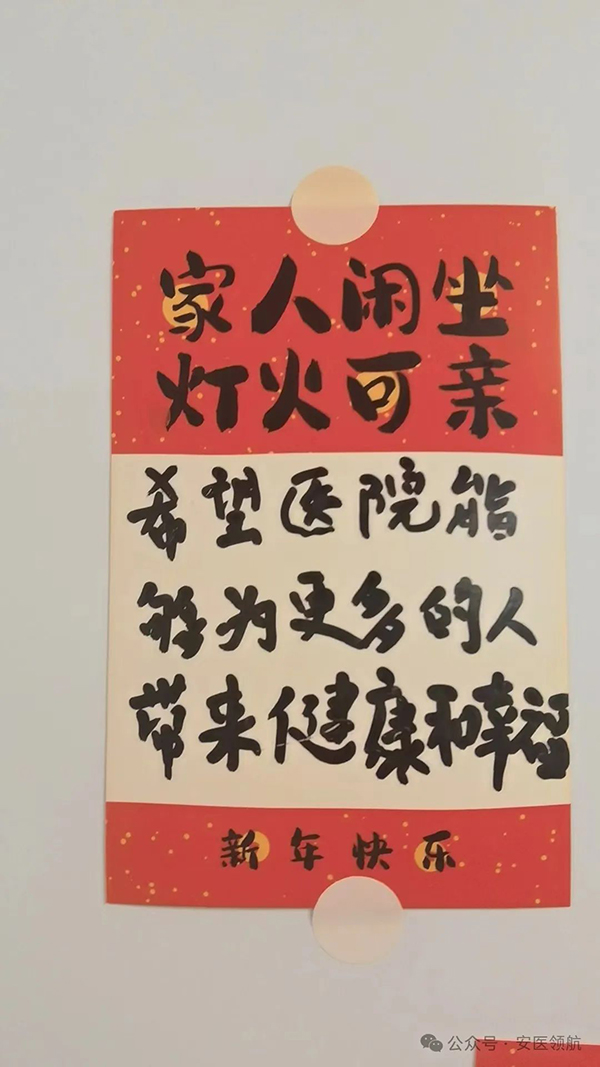 家人闲坐
灯火可亲
希望医院能
够为更多的人
带来健康和幸福
新年快乐
公众号·安医领航